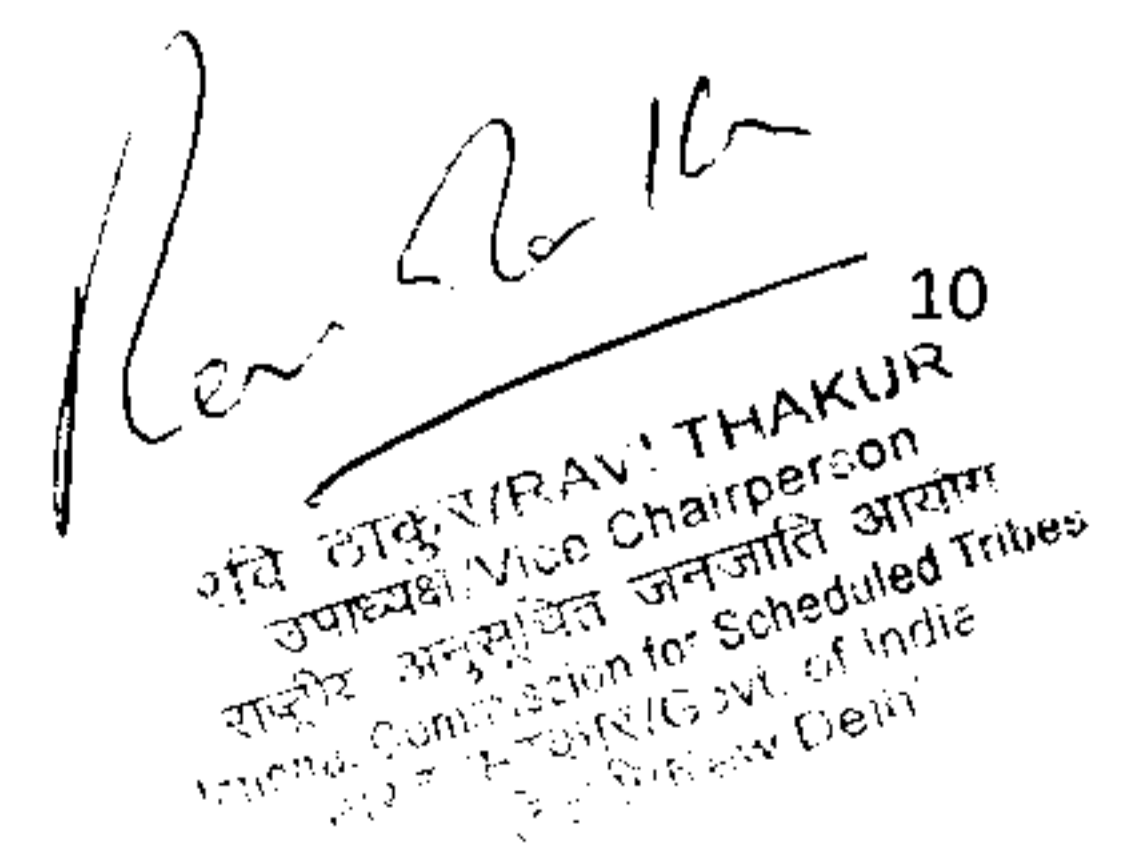 10
रवि ठाकुर/RAVI THAKUR
उपाध्यक्ष/Vice Chairperson
राष्ट्रीय अनुसूचित जनजाति आयोग
Commission for Scheduled Tribes
/Govt. of India
New Delhi